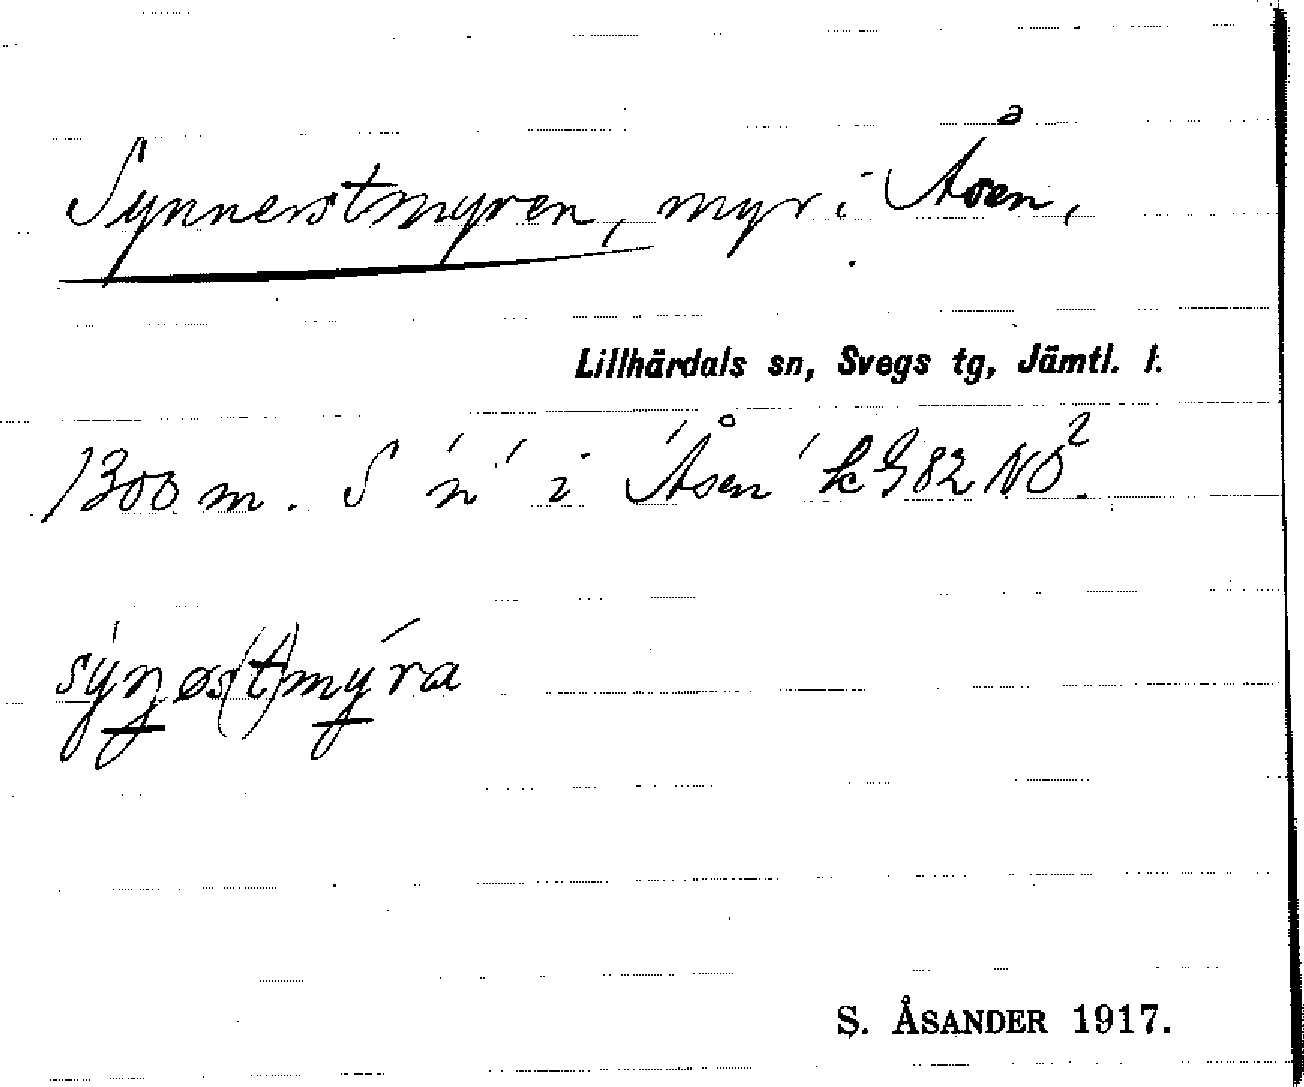 Synnerstmyren, myr i Åsen,
Lillhärdals sn, Svegs tg, Jämtl. l.
1300 m. S ´n´ i ´Åsen´ k G82 NO².
sýnøs(t)mýra
S. ÅSANDER 1917.